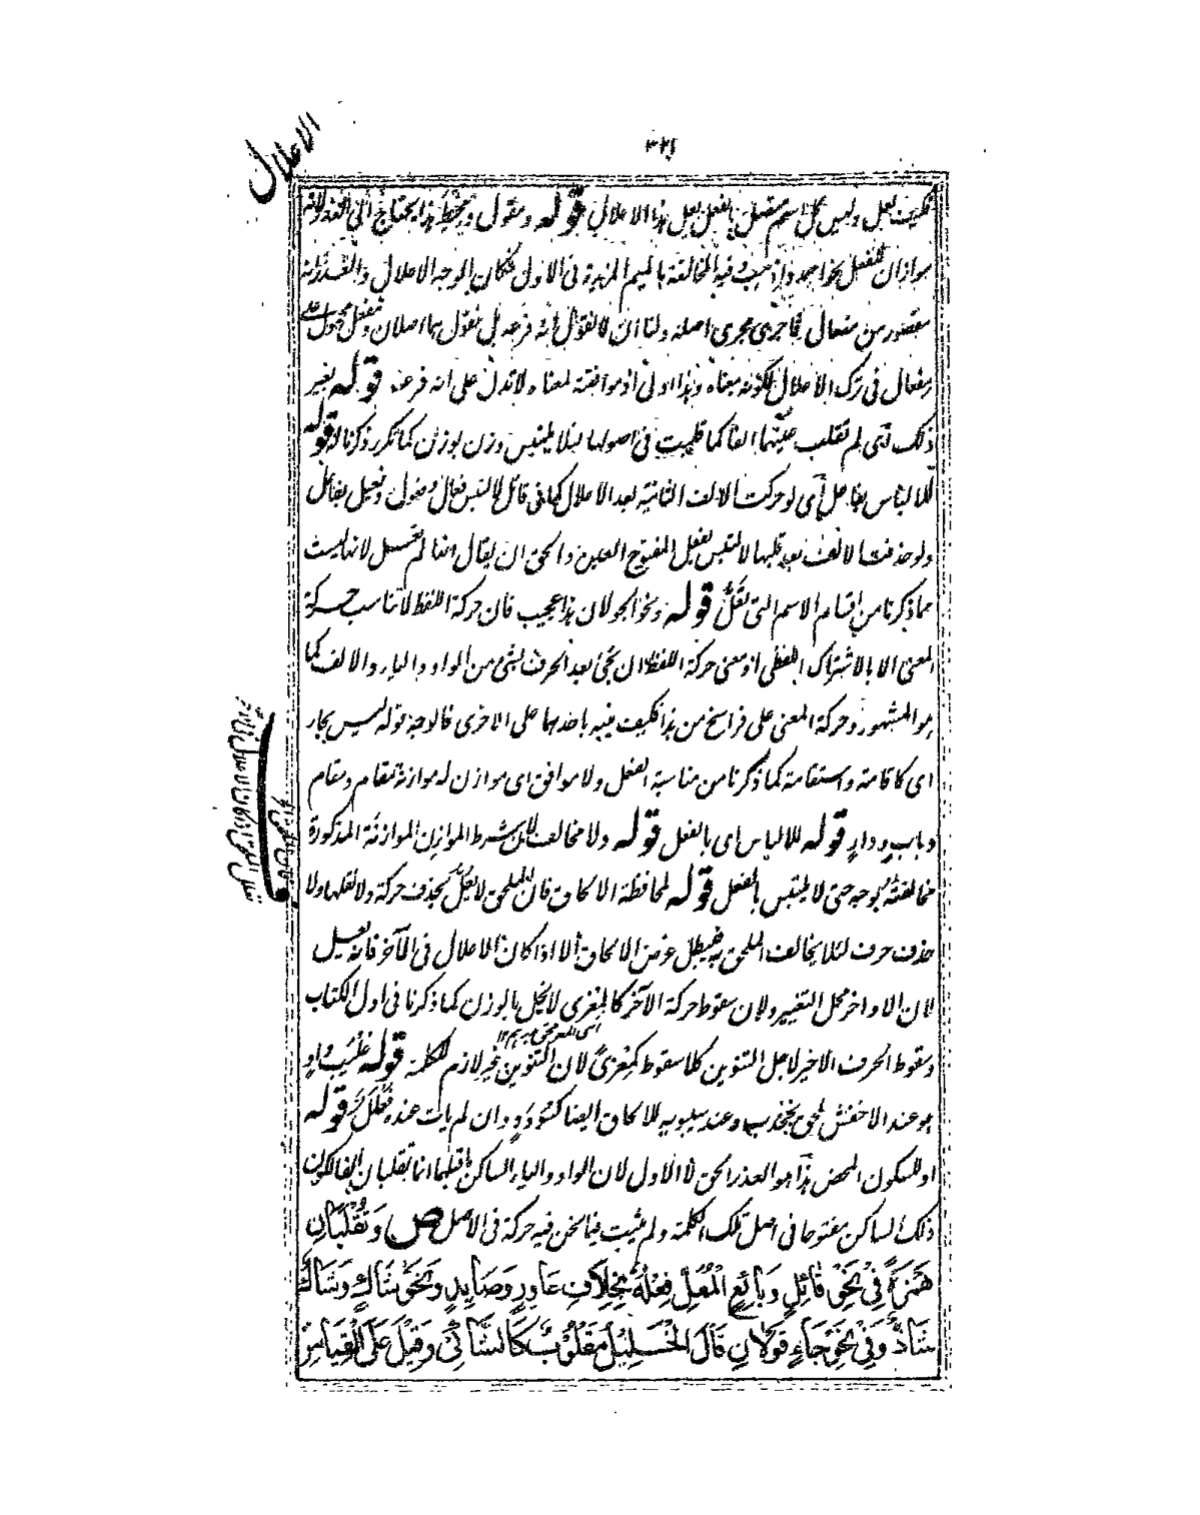 ٣٢٤
الاعلال
فكيف يعل وليس كل اسم متصل بالفعل يعل هذا الاعلال قوله ومقول ومخيط هذا يحتاج الى العذر لانه
موازن للفعل نحو احمد واذهب وفيه المخالفة بالميم المزيدة فى الاول فكان الوجه الاعلال والعذر انه
مقصور من مفعال فاجرى مجرى اصله ولنا ان لا نقول انه فرعه بل نقول هما اصلان ومفعل محمول على
مفعال فى ترك الاعلال لكونه بمعناه وهذا اولى اذ موافقته لمعناه لا تدل على انه فرعه قوله بغير
ذلك شى لم تقلب عينها الفا كما قلبت فى اصولها لئلا يلتبس وزن بوزن كما تكرر ذكرنا له قوله
للالباس بفاعل أى لو حركت الالف الثانية بعد الاعلال كما فى قائل لالتبس فعال وفعول وفعيل بفاعل
ولو حذفت الالف بعد قلبها لالتبس بفعل المفتوح العين والحق ان يقال انها لم تعل لانها ليست
مما ذكرنا من اقسام الاسم التى تعل قوله ونحو الجولان هذا عجيب فان حركة اللفظ لا تناسب حركة
المعنى الا بالاشتراك اللفظى اذ معنى حركة اللفظ ان تجئ بعد الحرف بشئ من الواو والياء والالف كما
هو المشهور وحركة المعنى على فراسخ من هذا فكيف ينبه باحدهما على الاخرى فالوجه قوله ليس بجار
اى كاقامة واستقامة كما ذكرنا من مناسبة الفعل ولا موافق اى موازن له موازنة مقام ومقام
وباب ودار قوله للالباس اى بالفعل قوله ولا مخالف لان شرط الموازن الموازنة المذكورة
مخالفته بوجه حتى لا يلتبس بالفعل قوله لمحافظة الالحاق فان الملحق لا يعل بحذف حركة ولا نقلها ولا
حذف حرف لئلا يخالف الملحق به فيبطل غرض الالحاق الا اذا كان الاعلال فى الآخر فانه يعل
لان الاواخر محل التغيير ولان سقوط حركة الآخر كالمعزى لا يخل بالوزن كما ذكرنا فى اول الكتاب
وسقوط الحرف الاخير لاجل التنوين كلا سقوط كمعزى لان التنوين غير لازم للكلمة قوله عليب واو
هو عند الاخفش ملحق بجخدب وعند سيبويه للالحاق ايضا كسودد وان لم يأت عنده فعلل قوله
او للسكون المحض هذا هو العذر الحق لا الاول لان الواو والياء الساكن ما قبلهما انما تقلبان الفا لكون
ذلك الساكن مفتوحا فى اصل تلك الكلمة ولم يثبت فيما نحن فيه حركة فى الاصل ص وَتُقْلَبَانِ
هَمْزَةً فِىْ نَحْوِ قَائِلٍ وَبَائِعٍ الْمُعَلِّ فِعْلُهُ بِخِلَافِ عَاوِرٍ وَصَايِدٍ وَنَحْوُ شَاكٍ وَشَاكُ
شَاذٌّ وَفِىْ نَحْوِ جَاءٍ قَوْلَانِ قَالَ الْخَلِيْلُ مَقْلُوْبٌ كَالشَّاكِىْ وَقِيْلَ عَلَى الْقِيَاسِ